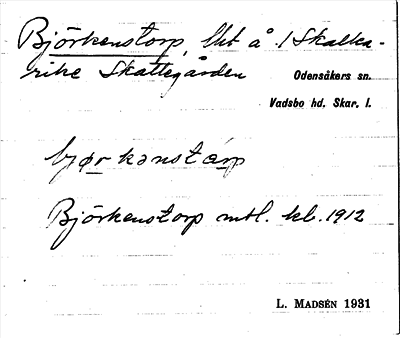 Björkenstorp, lht å /Skalka-
rike Skattegården
Odensåkers sn.
Vadsbo hd. Skar. l.
bjør kənstårp
Björkenstorp mtl. kl. 1912
L. Madsén 1931